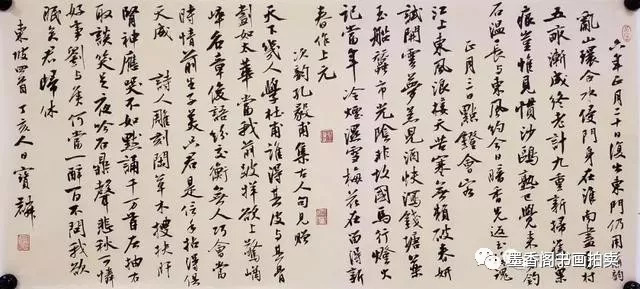 六年正月二十日復出東門仍用前韻
亂山環合水侵門身在淮南盡處村
五畝漸成終老計九重新掃舊巢
痕豈惟見慣沙鷗熟已覺來多釣
石溫長與東風約今日暗香先返玉魂
正月三日點鐙會客
江上東風浪接天苦寒無賴破春妍
試開雲夢羔兒酒快瀉錢塘藥
玉船蠶市光陰非故國馬行燈火
記當年冷煙濕雪梅花在留得新
春作上元
次韻孔毅甫集古人句見贈
天下幾人學杜甫誰得其皮與其骨
劃如太華當我前跛牂欲上驚崷
崒名章俊語紛交衡無人巧會當
時情前生子美只君是信手拈得俱
天成 詩人雕刻閑草木搜抉肝
腎神應哭不如默誦千万首左抽右
取談笑足夜吟石鼎聲悲秋可憐
好事劉與侯何當一醉百不問我欲
眠矣君歸休
東坡四首丁亥人日寶麟
墨香阁书画拍卖